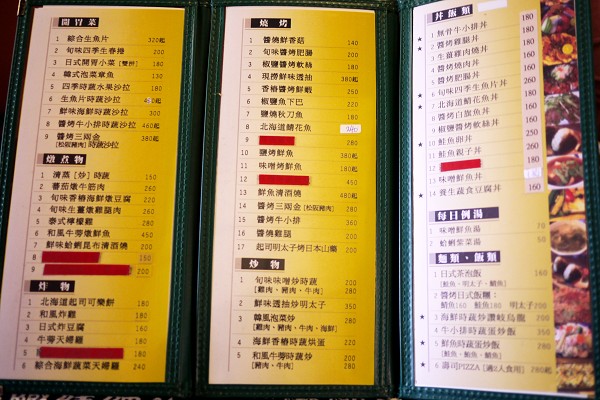 開胃菜
1 綜合生魚片 320起
2 旬味四季生春捲 200
3 日式開胃小菜[雙拼] 180
4 韓式泡菜章魚 130
5 四季時蔬水果沙拉 180
6 生魚片時蔬沙拉
7 鮮味海鮮時蔬沙拉 300
8 醬烤牛小排時蔬沙拉 460起
9 醬烤三兩金 380起
[松阪豬肉]時蔬沙拉
燉煮物
1 清蒸[炒]時蔬 150
2 蕃茄燉牛筋肉 260
3 旬味香椿海鮮燉豆腐 220
4 旬味生薑燉雞腿肉 260
5 泰式檸檬雞 280
6 和風牛蒡燉魚 450
7 鮮味蛤蜊昆布清酒燒 200
8 150
9 200
炸物
1 北海道起司可樂餅 180
2 和風炸雞 180
3 日式炸豆腐 160
4 牛蒡天婦羅 180
5
6 綜合海鮮蔬菜天婦羅 240
燒烤
1 醬燒鮮香菇 140
2 旬味醬烤肥腸 200
3 椒鹽醬烤軟絲 180
4 現撈鮮味透抽 380起
5 香椿醬烤鮮蝦 350
6 椒鹽魚下巴 220
7 鹽燒秋刀魚 100
8 北海道鯖花魚
9 280
10 鹽烤鮮魚 380起
11 味噌烤鮮魚 380起
12 450
13 鮮魚清酒燒 480起
14 醬烤三兩金[松阪豬肉] 280
15 醬烤牛小排 360
16 醬燒雞腿 200
17 起司明太子烤日本山藥 200
炒物
1 旬味味噌炒時蔬 200
[雞肉、豬肉、牛肉]
2 鮮味透抽炒明太子 350
3 韓風泡菜炒 260
[雞肉、豬肉、牛肉、海鮮]
4 海鮮香椿時蔬烘蛋 220
5 和風牛蒡時蔬炒 200
[豬肉、牛肉]
丼飯類
1 無骨牛小排丼 180
2 醬烤雞腿丼 180
3 生薑雞肉燒丼 160
4 醬燒燒肉丼 160
5 醬烤肥腸丼 160
6 旬味四季生魚片丼
7 北海道鯖花魚丼
8 醬烤白旗魚丼
9 椒鹽醬烤軟絲丼
10 鮭魚卵丼
11 鮭魚親子丼
12
13 味噌鮮魚丼 180
14 養生蔬食豆腐丼 160
每日例湯
1 味噌鮮魚湯 70
2 蛤蜊紫菜湯 50
麵類、飯類
1 日式茶泡飯 160
[鮭魚、明太子、鯛魚]
2 醬烤日式飯糰:
鯛魚160 鮭魚160 明太子200
3 海鮮時蔬炒讚岐烏龍 200
4 牛小排時蔬蛋炒飯 200
5 鮮魚時蔬蛋炒飯 200
[鮭魚、鮪魚、鯛魚]
6 壽司PIZZA[適2人食用] 280